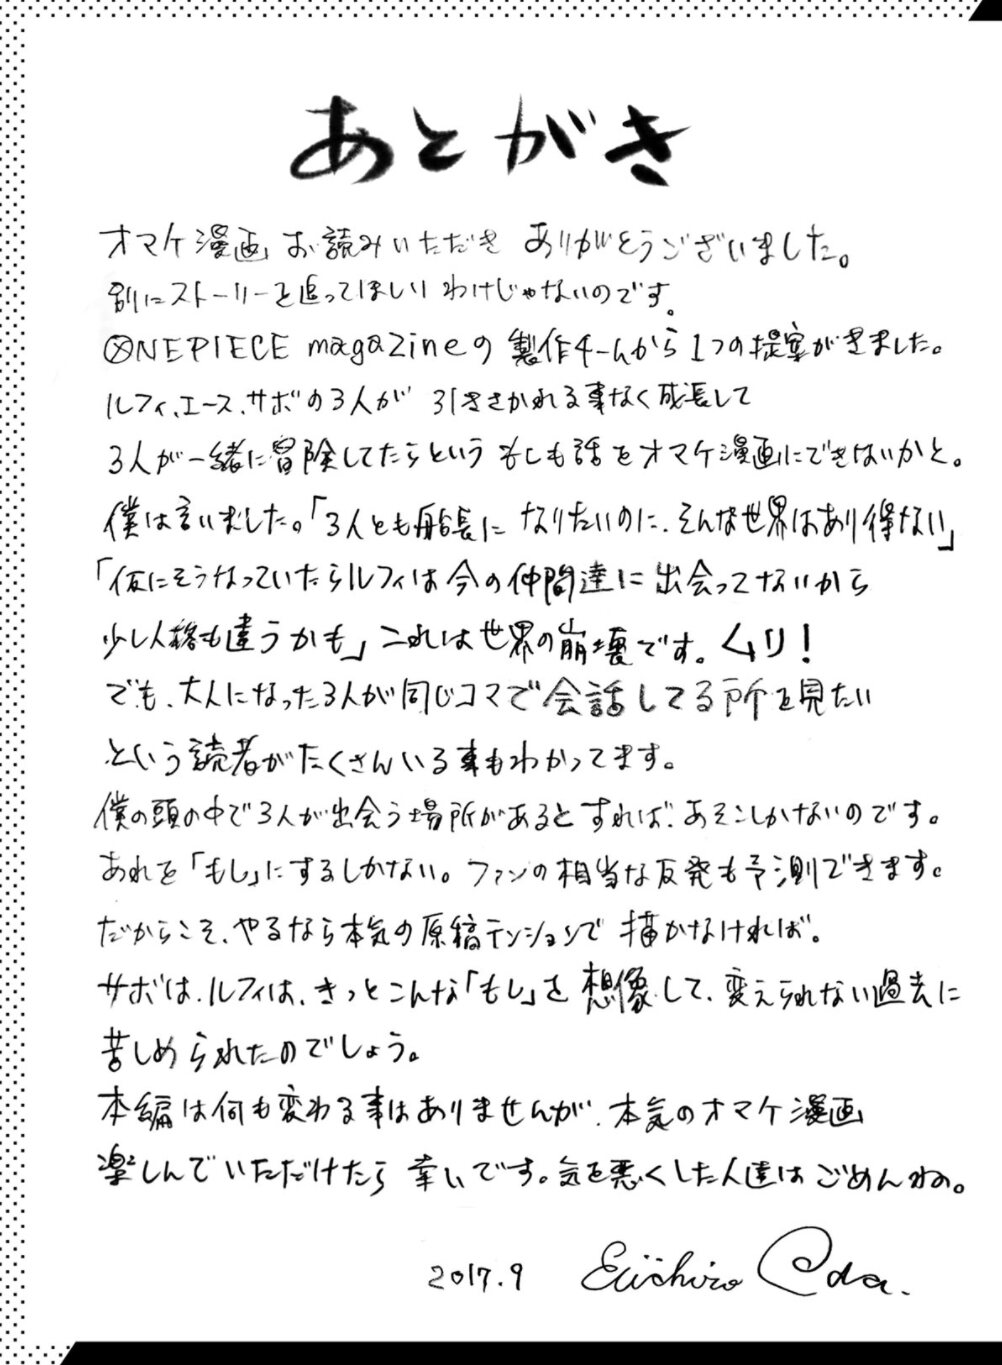 あとがき
オマケ漫画 お読みいただき ありがとうございました。
別にストーリーを追ってほしい わけじゃないのです。
ONEPIECE magazineの 製作チームから1つの提案がきました。
ルフィ、エース、サボの3人が 引きさかれる事なく成長して
3人が一緒に冒険してたらという もしも話をオマケ漫画にできないかと。
僕は言いました。「3人とも船長に なりたいのに、そんな世界はあり得ない」
「仮にそうなっていたらルフィは今の仲間達に出会ってないから
少し人格も違うかも」これは世界の崩壊です。ムリ!
でも、大人になった3人が同じコマで会話してる所を見たい
という読者がたくさんいる事もわかってます。
僕の頭の中で3人が出会う場所があるとすれば、あそこしかないのです。
あれを「もし」にするしかない。ファンの相当な反発も予測できます。
だからこそ、やるなら本気の原稿テンションで 描かなければ。
サボは、ルフィは、きっとこんな「もし」を 想像して、変えられない過去に
苦しめられたのでしょう。
本編は何も変わる事はありませんが、本気のオマケ漫画
楽しんでいただけたら 幸いです。気を悪くした人達はごめんねの。
2017.9 Eiichiro Oda.